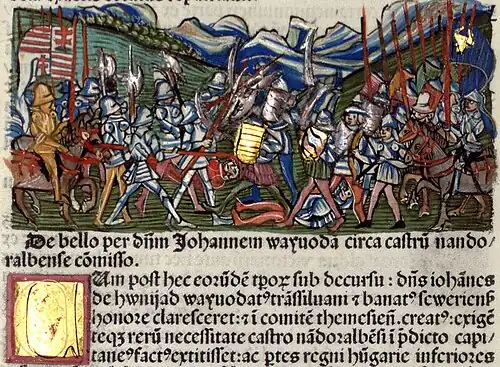 De bello per dn̄m Johannem wayuoda circa castrū nando/
ralbense cōmisso.
Um post hec eorūdē tꝑoꝝ sub decursu : dn̄s iohānes
de hwnijad wayuodatꝰ trāssiluani ⁊ banatꝰ sewerienſ̄
honore claresceret : ⁊ ī comitē themesienꝭ. creatꝰ : exigē
teqꝫ reꝝ necessitate castro nādoralbēsi ī p̄dicto capi/
taneꝰ factꝰ extitisset : ac ꝑtes regni hūgarie inferiores